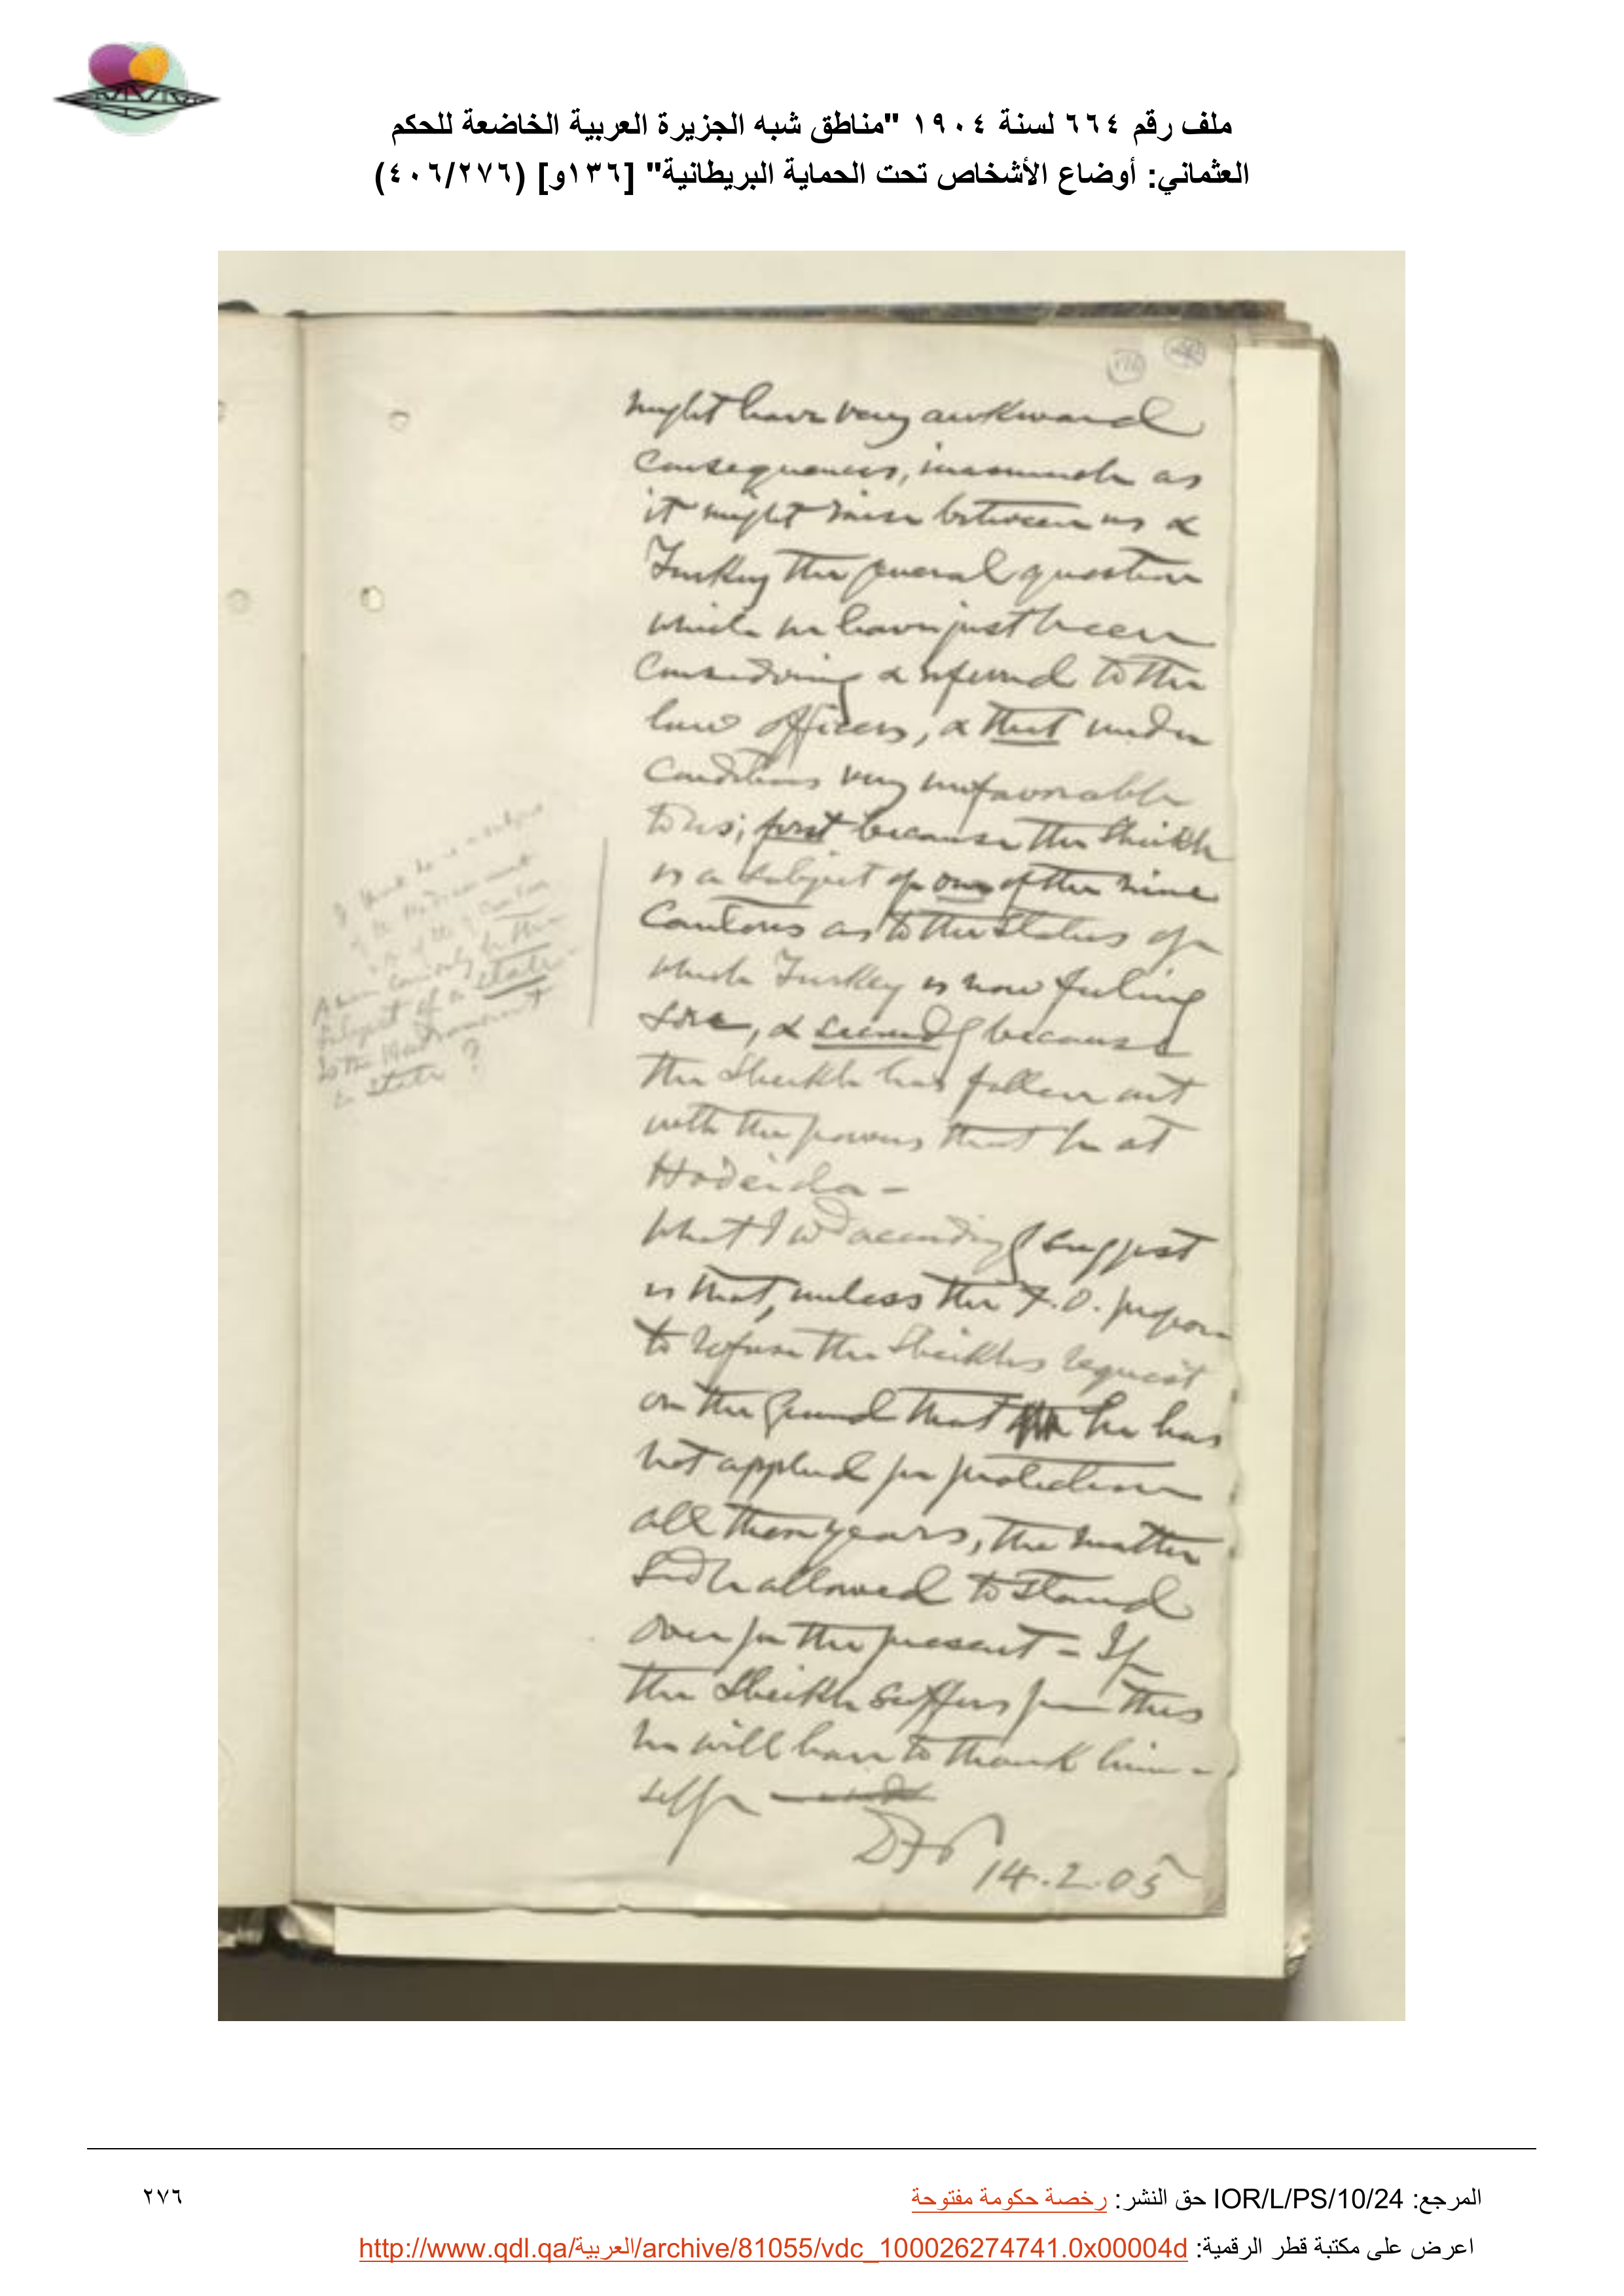 ملف رقم ٦٦٤ لسنة ١٩٠٤ "مناطق شبه الجزيرة العربية الخاضعة للحكم
العثماني: أوضاع الأشخاص تحت الحماية البريطانية" [١٣٦و] (٤٠٦/٢٧٦)
might have very awkward
consequences, inasmuch as
it might raise between us &
Turkey the general question
which we have just been
considering & referred to the
law officers, & that under
conditions very unfavorable
to us; first because the Sheikh
is a subject of one of the nine
Cantons as to the status of
which Turkey is now feeling
sore, & secondly because
the Sheikh has fallen out
with the powers that be at
Hodeida -
What I wd accordingly suggest
is that, unless the F.O. propose
to refuse the Sheikh's request
on the ground that he has
not applied for protection
all these years, the matter
shd be allowed to stand
over for the present - If
the Sheikh suffers from this
he will have to thank him-
self
14.2.05
I think he is a subject
of the Hadramaut
not of the 9 Cantons
A man can only be the
subject of a State -
Is the Hadramaut
a State ?
المرجع: IOR/L/PS/10/24 حق النشر: رخصة حكومة مفتوحة
٢٧٦
اعرض على مكتبة قطر الرقمية: http://www.qdl.qa/العربية/archive/81055/vdc_100026274741.0x00004d